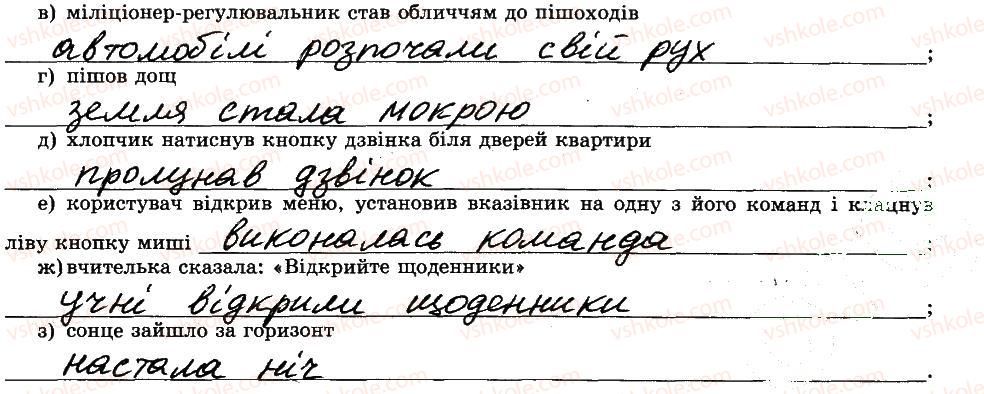 в) міліціонер-регулювальник став обличчям до пішоходів
автомобілі розпочали свій рух;
г) пішов дощ
земля стала мокрою;
д) хлопчик натиснув кнопку дзвінка біля дверей квартири
пролунав дзвінок;
е) користувач відкрив меню, установив вказівник на одну з його команд і клацнув
ліву кнопку миші виконалась команда;
ж) вчителька сказала: «Відкрийте щоденники»
учні відкрили щоденники;
з) сонце зайшло за горизонт
настала ніч.